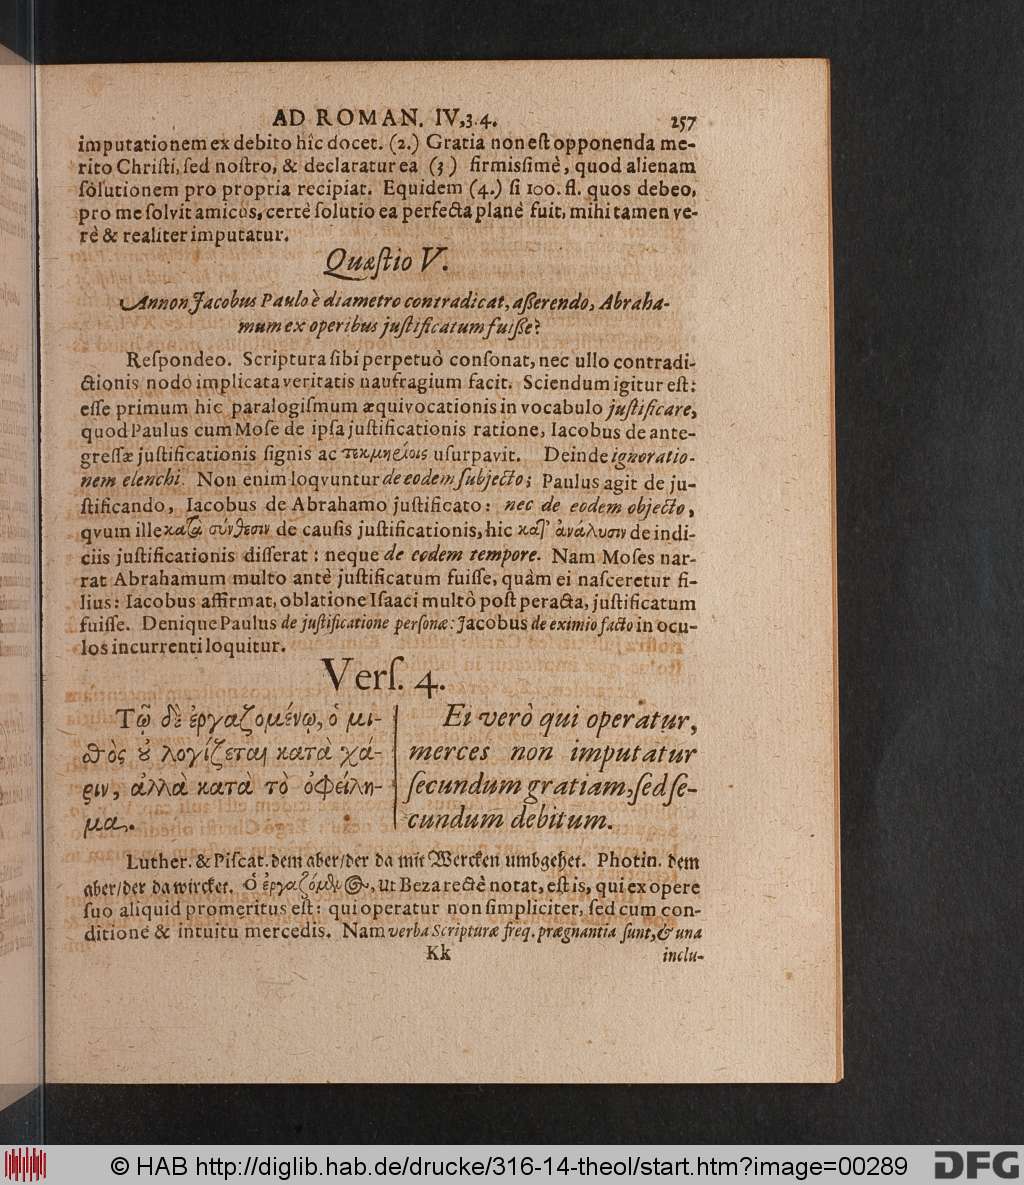 AD ROMAN. IV,3.4. 257
imputationem ex debito hîc docet. (2.) Gratia non eſt opponenda me-
rito Chriſti, ſed noſtro, & declaratur ea (3) firmisſimè, quod alienam
ſolutionem pro propria recipiat. Equidem (4.) ſi 100. fl. quos debeo,
pro me ſolvit amicus, certè ſolutio ea perfecta planè fuit, mihi tamen ve-
rè & realiter imputatur.
Quæſtio V.
Annon Jacobus Paulo è diametro contradicat, aſſerendo, Abraha-
mum ex operibus juſtificatum fuiſſe?
Reſpondeo. Scriptura ſibi perpetuò conſonat, nec ullo contradi-
ctionis nodo implicata veritatis naufragium facit. Sciendum igitur eſt:
eſſe primum hic paralogiſmum æquivocationis in vocabulo juſtificare,
quod Paulus cum Moſe de ipſa juſtificationis ratione, Iacobus de ante-
greſſæ juſtificationis ſignis ac τεκμηρίοις uſurpavit. Deinde ignoratio-
nem elenchi. Non enim loqvuntur de eodem ſubjecto; Paulus agit de ju-
ſtificando, Iacobus de Abrahamo juſtificato: nec de eodem objecto,
qvum ille κατὰ σύνθεσιν de cauſis juſtificationis, hic κατ' ἀνάλυσιν de indi-
ciis juſtificationis diſſerat: neque de eodem tempore. Nam Moſes nar-
rat Abrahamum multo antè juſtificatum fuiſſe, quàm ei naſceretur fi-
lius: Iacobus affirmat, oblatione Iſaaci multò poſt peracta, juſtificatum
fuiſſe. Denique Paulus de juſtificatione perſonæ: Jacobus de eximio facto in ocu-
los incurrenti loquitur.
Verſ. 4.
Τῷ δὲ ἐργαζομένῳ, ὁ μι-
σθὸς ȣ̓ λογίζεται κατὰ χά-
ριν, ἀλλὰ κατὰ τὸ ὀφείλη-
μα.
Ei verò qui operatur,
merces non imputatur
ſecundum gratiam, ſed ſe-
cundum debitum.
Luther. & Piſcat. dem aber/der da mit Wercken umbgehet. Photin. dem
aber/der da wircket. Ὁ ἐργαζόμενος, ut Beza rectè notat, eſt is, qui ex opere
ſuo aliquid promeritus eſt: qui operatur non ſimpliciter, ſed cum con-
ditione & intuitu mercedis. Nam verba Scripturæ freq. prægnantia ſunt, & una
Kk inclu-
© HAB http://diglib.hab.de/drucke/316-14-theol/start.htm?image=00289 DFG